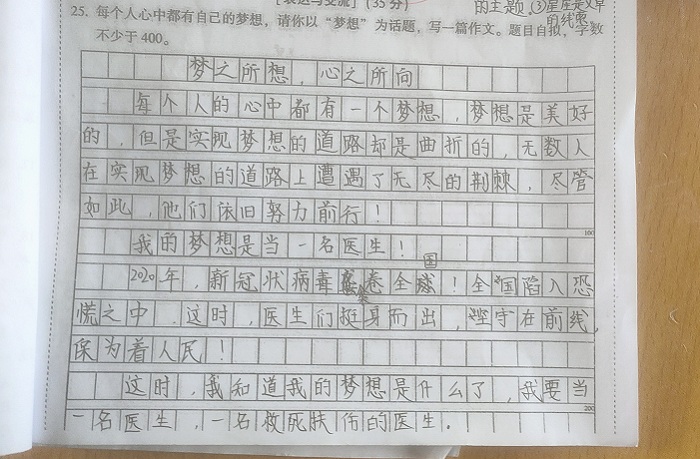 [表达与交流](35分)
的主题。(3)星座是又早
的线索
25. 每个人心中都有自己的梦想,请你以“梦想”为话题,写一篇作文。题目自拟,字数
不少于400。
梦之所想,心之所向
每个人的心中都有一个梦想,梦想是美好
的,但是实现梦想的道路却是曲折的,无数人
在实现梦想的道路上遭遇了无尽的荆棘,尽管
如此,他们依旧努力前行!
100
我的梦想是当一名医生!
国
2020年,新冠状病毒席卷全球!全国陷入恐
慌之中,这时,医生们挺身而出,坚守在前线,
保为着人民!
这时,我知道我的梦想是什么了,我要当
200
一名医生,一名救死扶伤的医生.